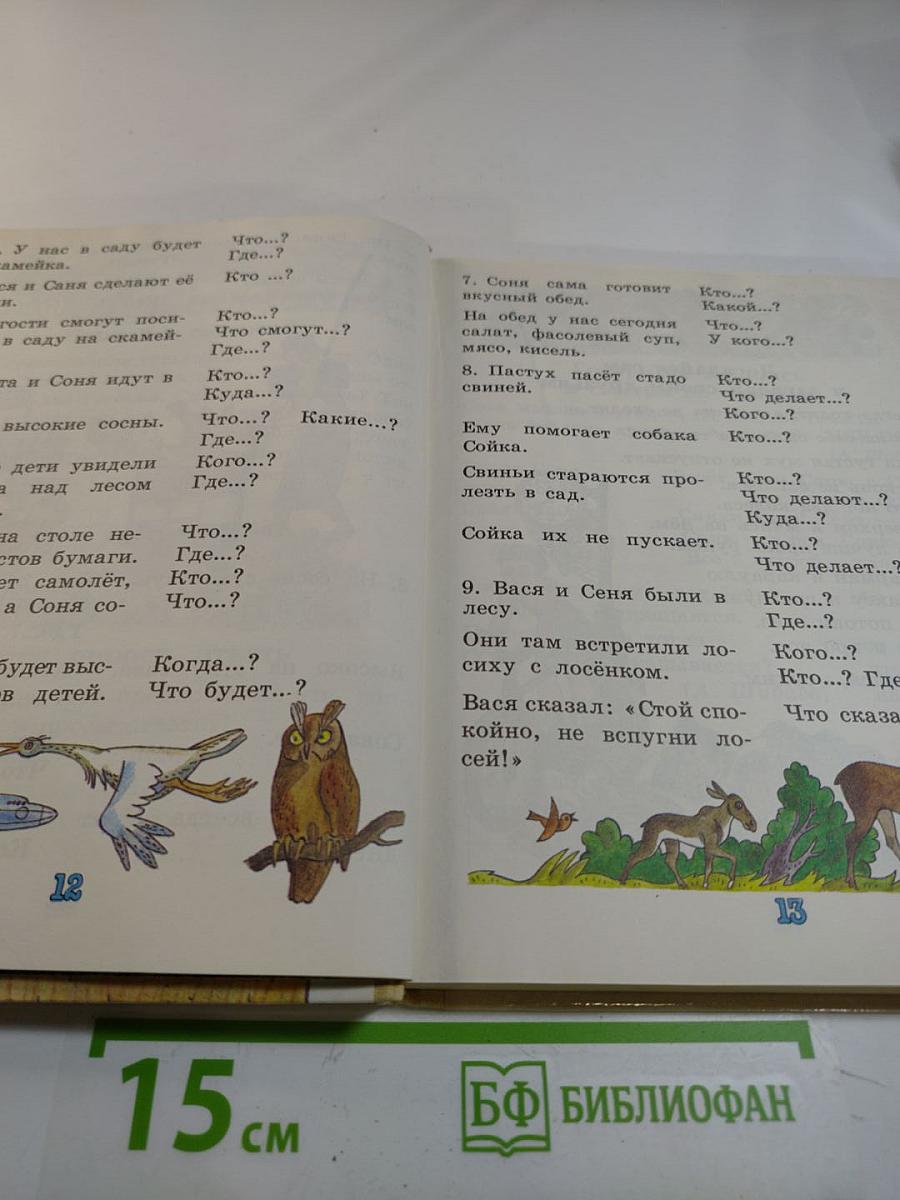 У нас в саду будет Что...?
камейка. Где...?
ся и Саня сделают её Кто ...?
и.
гости смогут поси- Кто...?
в саду на скамей- Что смогут...?
Где...?
та и Соня идут в Кто...?
Куда...?
высокие сосны. Что...? Какие...?
Где...?
дети увидели Кого...?
а над лесом Где...?
на столе не- Что...?
стов бумаги. Где...?
ет самолёт, Кто...?
а Соня со- Что...?
будет выс- Когда...?
ов детей. Что будет...?
12
7. Соня сама готовит Кто...?
вкусный обед. Какой...?
На обед у нас сегодня Что...?
салат, фасолевый суп, У кого...?
мясо, кисель.
8. Пастух пасёт стадо Кто...?
свиней. Что делает...?
Кого...?
Ему помогает собака Кто...?
Сойка.
Свиньи стараются про- Кто...?
лезть в сад. Что делают...?
Куда...?
Сойка их не пускает. Кто...?
Что делает...?
9. Вася и Сеня были в Кто...?
лесу. Где...?
Они там встретили ло- Кого...?
сиху с лосёнком. Кто...? Где
Вася сказал: «Стой спо- Что сказа
койно, не вспугни ло-
сей!»
13
15 см
БФ БИБЛИОФАН